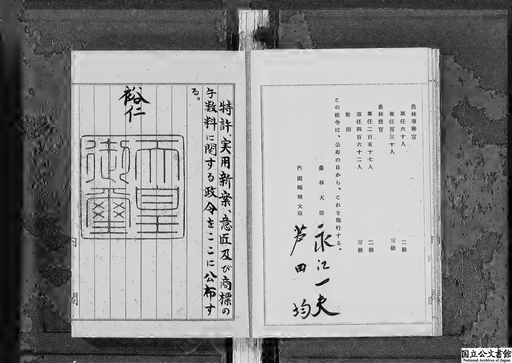 農林事務官
專任六十人 二級
專任百三十人 三級
農林技官
專任二百五十七人 二級
專任四百六十二人 三級
附則
この政令は、公布の日から、これを施行する。
農林大臣 永江一夫
内閣總理大臣 芦田均
特許、実用新案、意匠及び商標の
手数料に関する政令をここに公布す
る。
裕仁
天皇
御璽
内閣
国立公文書館
National Archives of Japan